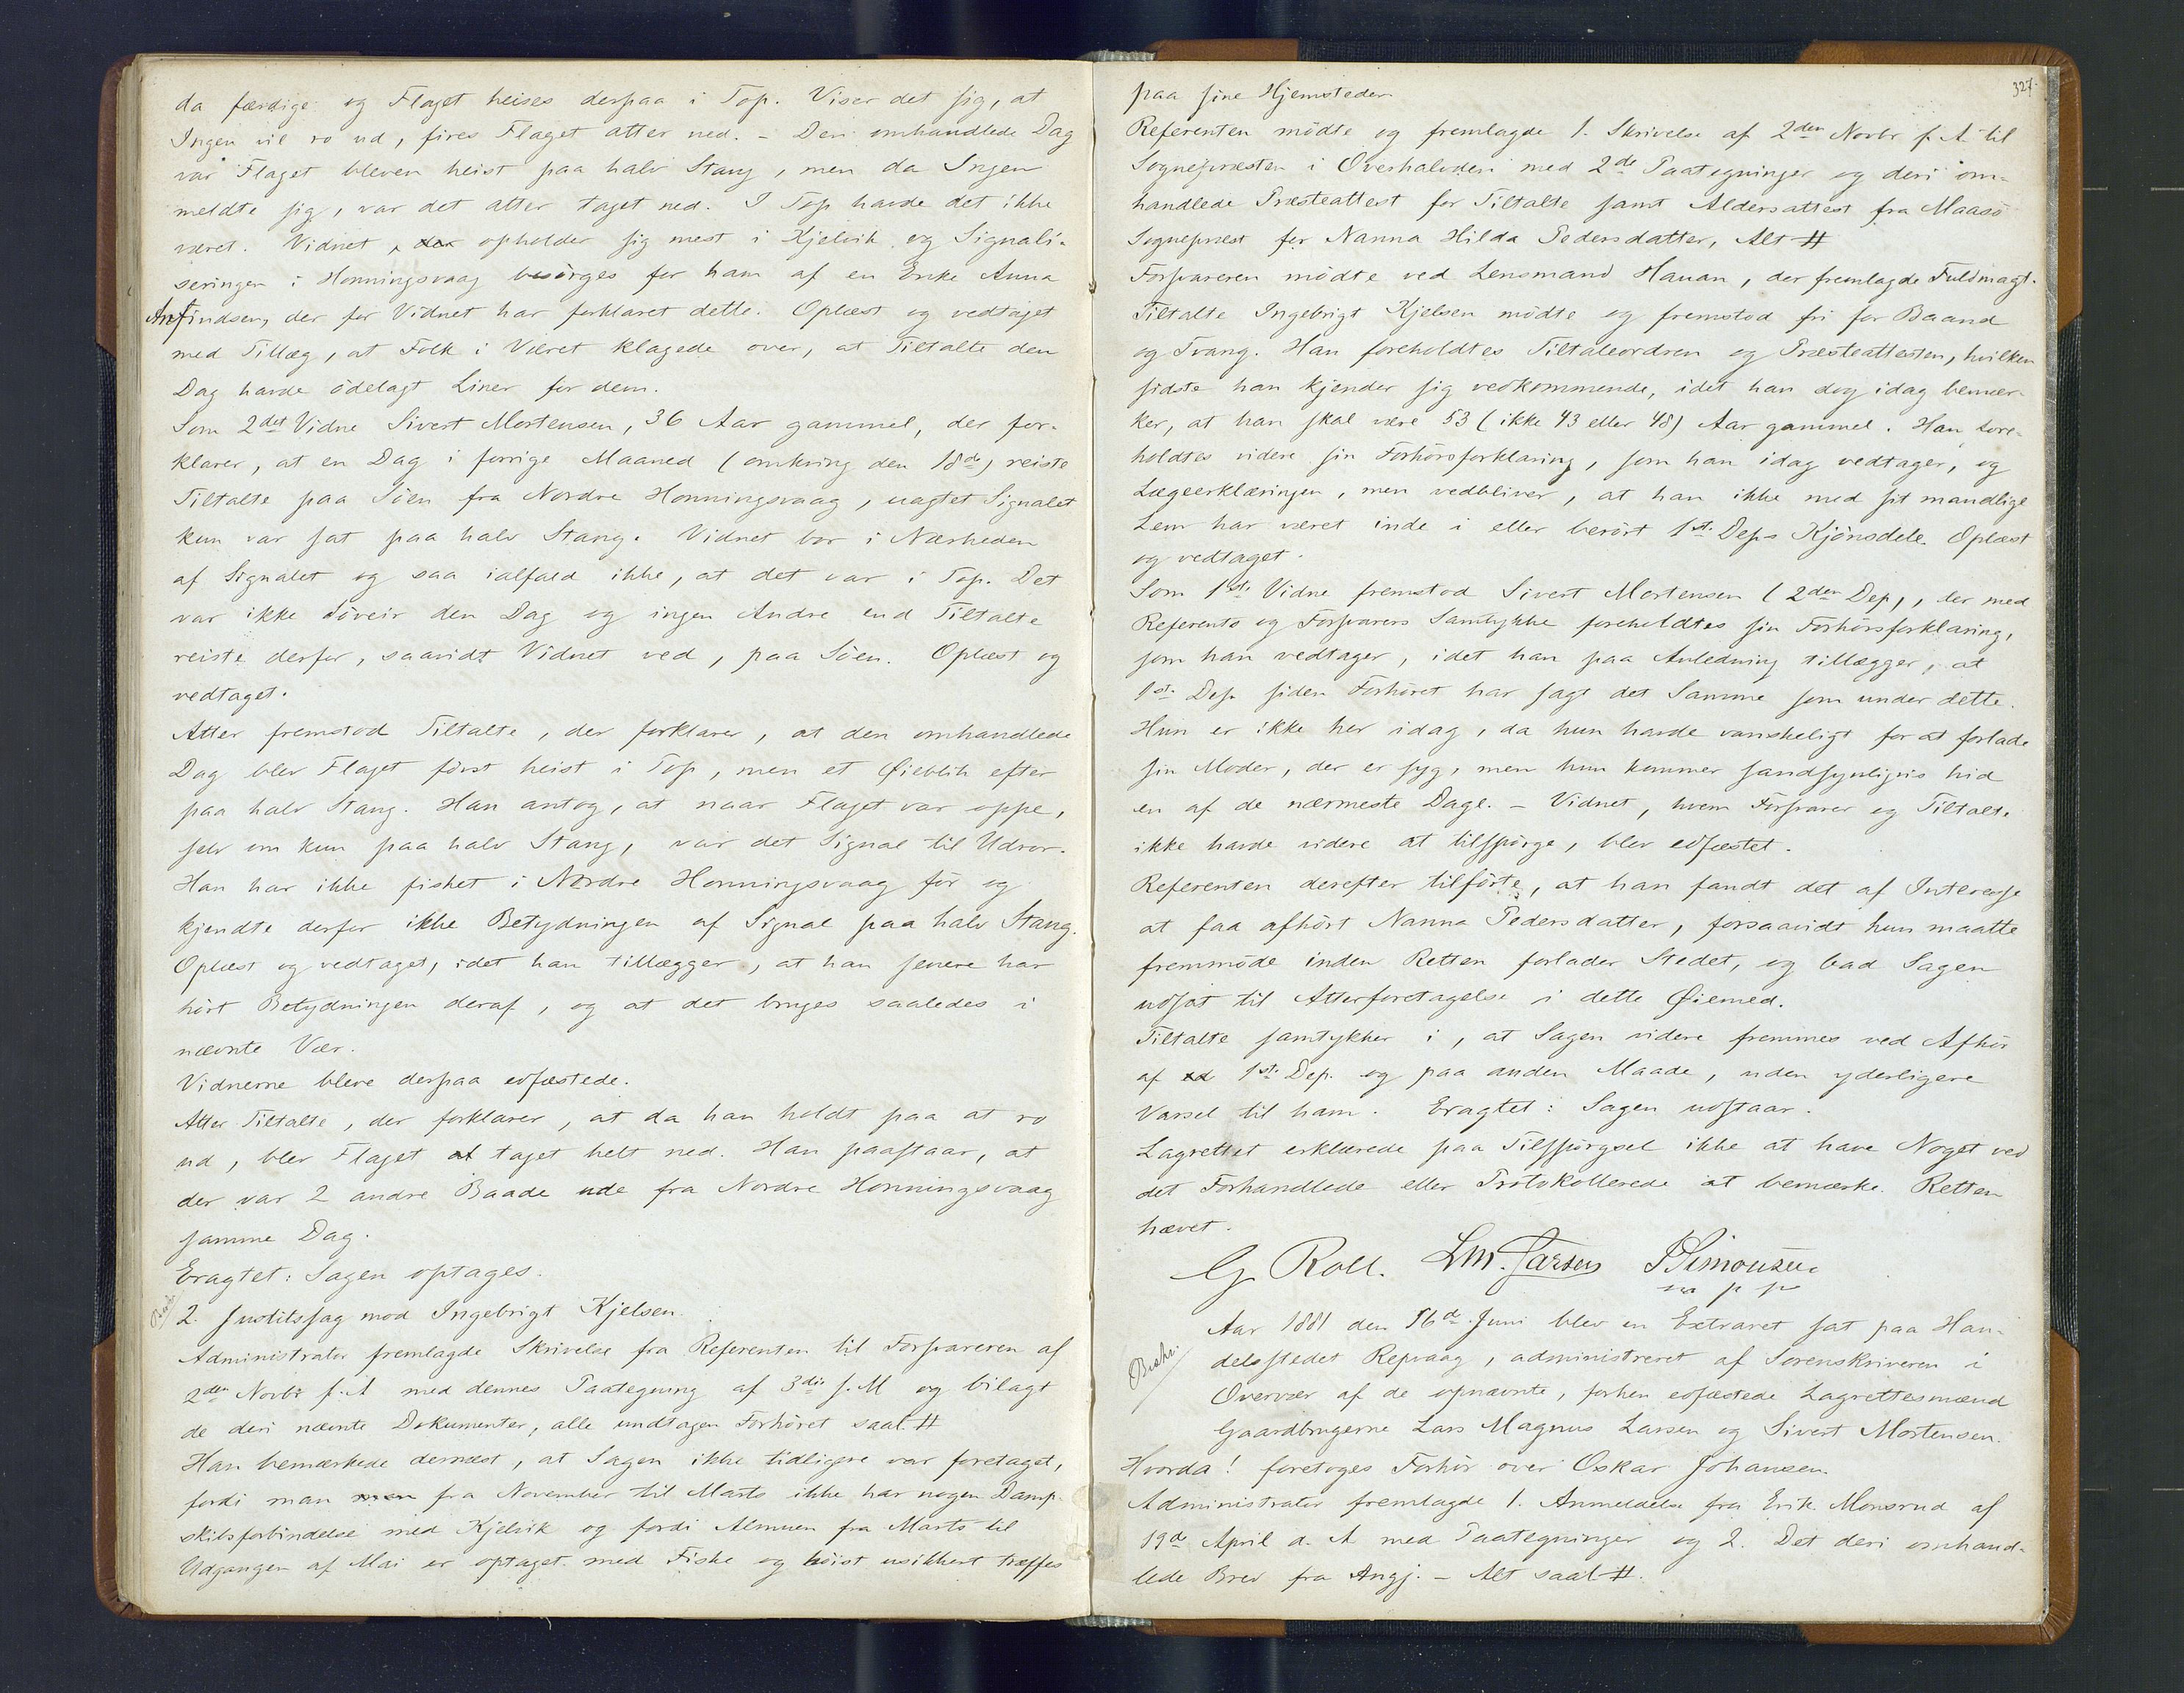 da færdige og Flaget heises derpaa i Top. Viser det sig, at
Ingen vil ro ud, fires Flaget atter ned. - Den omhandlede Dag
var Flaget bleven heist paa halv Stang, men da Ingen
meldte sig, var det atter taget ned. I Top havde det ikke
været. Vidnet, der opholder sig mest i Kjelvik og Signali-
seringen i Honningsvaag besörges for ham af en Enke Anna
Anfindsen, der for Vidnet har forklaret dette. Oplæst og vedtaget
med Tillæg, at Folk i Været klagede over, at Tiltalte den
Dag havde ödelagt Liner for dem.
Som 2det Vidne Sivert Mortensen, 36 Aar gammel, der for-
klarer, at en Dag i forrige Maaned (omkring den 18de) reiste
Tiltalte paa Söen fra Nordre Honningsvaag, uagtet Signalet
kun var sat paa halv Stang. Vidnet bor i Nærheden
af Signalet og saa ialfald ikke, at det var i Top. Det
var ikke Söveir den Dag og ingen Andre end Tiltalte
reiste derfor, saavidt Vidnet ved, paa Söen. Oplæst og
vedtaget.
Atter fremstod Tiltalte, der forklarer, at den omhandlede
Dag blev Flaget först heist i Top, men et Øieblik efter
paa halv Stang. Han antog, at naar Flaget var oppe,
selv om kun paa halv Stang, var det Signal til Udror.
Han har ikke fisket i Nordre Honningsvaag för og
kjendte derfor ikke Betydningen af Signal paa halv Stang.
Oplæst og vedtaget, idet han tillægger, at han senere har
hört Betydningen deraf, og at det bruges saaledes i
nævnte Vær.
Vidnerne bleve derpaa edfæstede.
Atter Tiltalte, der forklarer, at da han holdt paa at ro
ud, blev Flaget at taget helt ned. Han paastaar, at
der var 2 andre Baade ude fra Nordre Honningsvaag
samme Dag.
Eragtet: Sagen optages.
2. Justitssag mod Ingebrigt Kjelsen.
Administrator fremlagde Skrivelse fra Referenten til Forsvareren af
2den Novbr f. A med dennes Paategning af 3die s. M og bilagt
de deri nævnte Dokumenter, alle undtagen Forhöret saal. #
Han bemærkede dernæst, at Sagen ikke tidligere var foretaget,
fordi man men fra November til Marts ikke har nogen Damp-
skibsforbindelse med Kjelvik og fordi Almuen fra Marts til
Udgangen af Mai er optaget med Fiske og höist usikkert træffes
327.
paa sine Hjemsteder.
Referenten mödte og fremlagde 1. Skrivelse af 2den Novbr f. A til
Sognepræsten i Overhalvden med 2de Paategninger og deri om-
handlede Præsteattest for Tiltalte samt Aldersattest fra Maasö
Sognepræst for Nanna Hilda Pedersdatter, Alt #
Forsvareren mödte ved Lensmand Hauan, der fremlagde Fuldmagt.
Tiltalte Ingebrigt Kjelsen mödte og fremstod fri for Baand
og Tvang. Han foreholdtes Tiltaleordren og Præsteattesten, hvilken
sidste han kjender sig vedkommende, idet han dog idag bemær-
ker, at han skal være 53 (ikke 43 eller 48) Aar gammel. Han fore-
holdtes videre sin Forhörsforklaring, som han idag vedtager, og
Lægeerklæringen, men vedbliver, at han ikke med sit mandlige
Lem har været inde i eller berört 1st. Deps Kjönsdele. Oplæst
og vedtaget.
Som 1ste Vidne fremstod Sivert Mortensen (2den Dep), der med
Referents og Forsvarers Samtykke foreholdtes sin Forhörsforklaring,
som han vedtager, idet han paa Anledning tillægger, at
1st. Dep. siden Forhöret har sagt det Samme som under dette.
Hun er ikke her idag, da hun havde vanskeligt for at forlade
sin Moder, der er syg, men hun kommer sandsynligvis hid
en af de nærmeste Dage. - Vidnet, hvem Forsvarer og Tiltalte
ikke havde videre at tilspörge, blev edfæstet.
Referenten derefter tilförte, at han fandt det af Interesse
at faa afhört Nanna Pedersdatter, forsaavidt hun maatte
fremmöde inden Retten forlader Stedet, og bad Sagen
udsat til Atterforetagelse i dette Øiemed.
Tiltalte samtykker i, at Sagen videre fremmes ved Afhör
af 1st. Dep. og paa anden Maade, uden yderligere
Varsel til ham. Eragtet: Sagen udstaar.
Lagrettet erklærede paa Tilspörgsel ikke at have Noget ved
det Forhandlede eller Protokollerede at bemærke. Retten
hævet.
G. Roll. LM. Larsen PSimonsen
m p p
Aar 1881 den 16de Juni blev en Extraret sat paa Han-
delsstedet Repvaag, administreret af Sorenskriveren i
Overvær af de opnævnte, forhen edfæstede Lagrettesmænd
Gaardbrugerne Lars Magnus Larsen og Sivert Mortensen.
Hvorda! foretoges Forhör over Oskar Johansen.
Administrator fremlagde 1. Anmeldelse fra Erik Monsrud af
19de April d. A med Paategninger og 2. Det deri omhand-
lede Brev fra Angj. - Alt saal #.